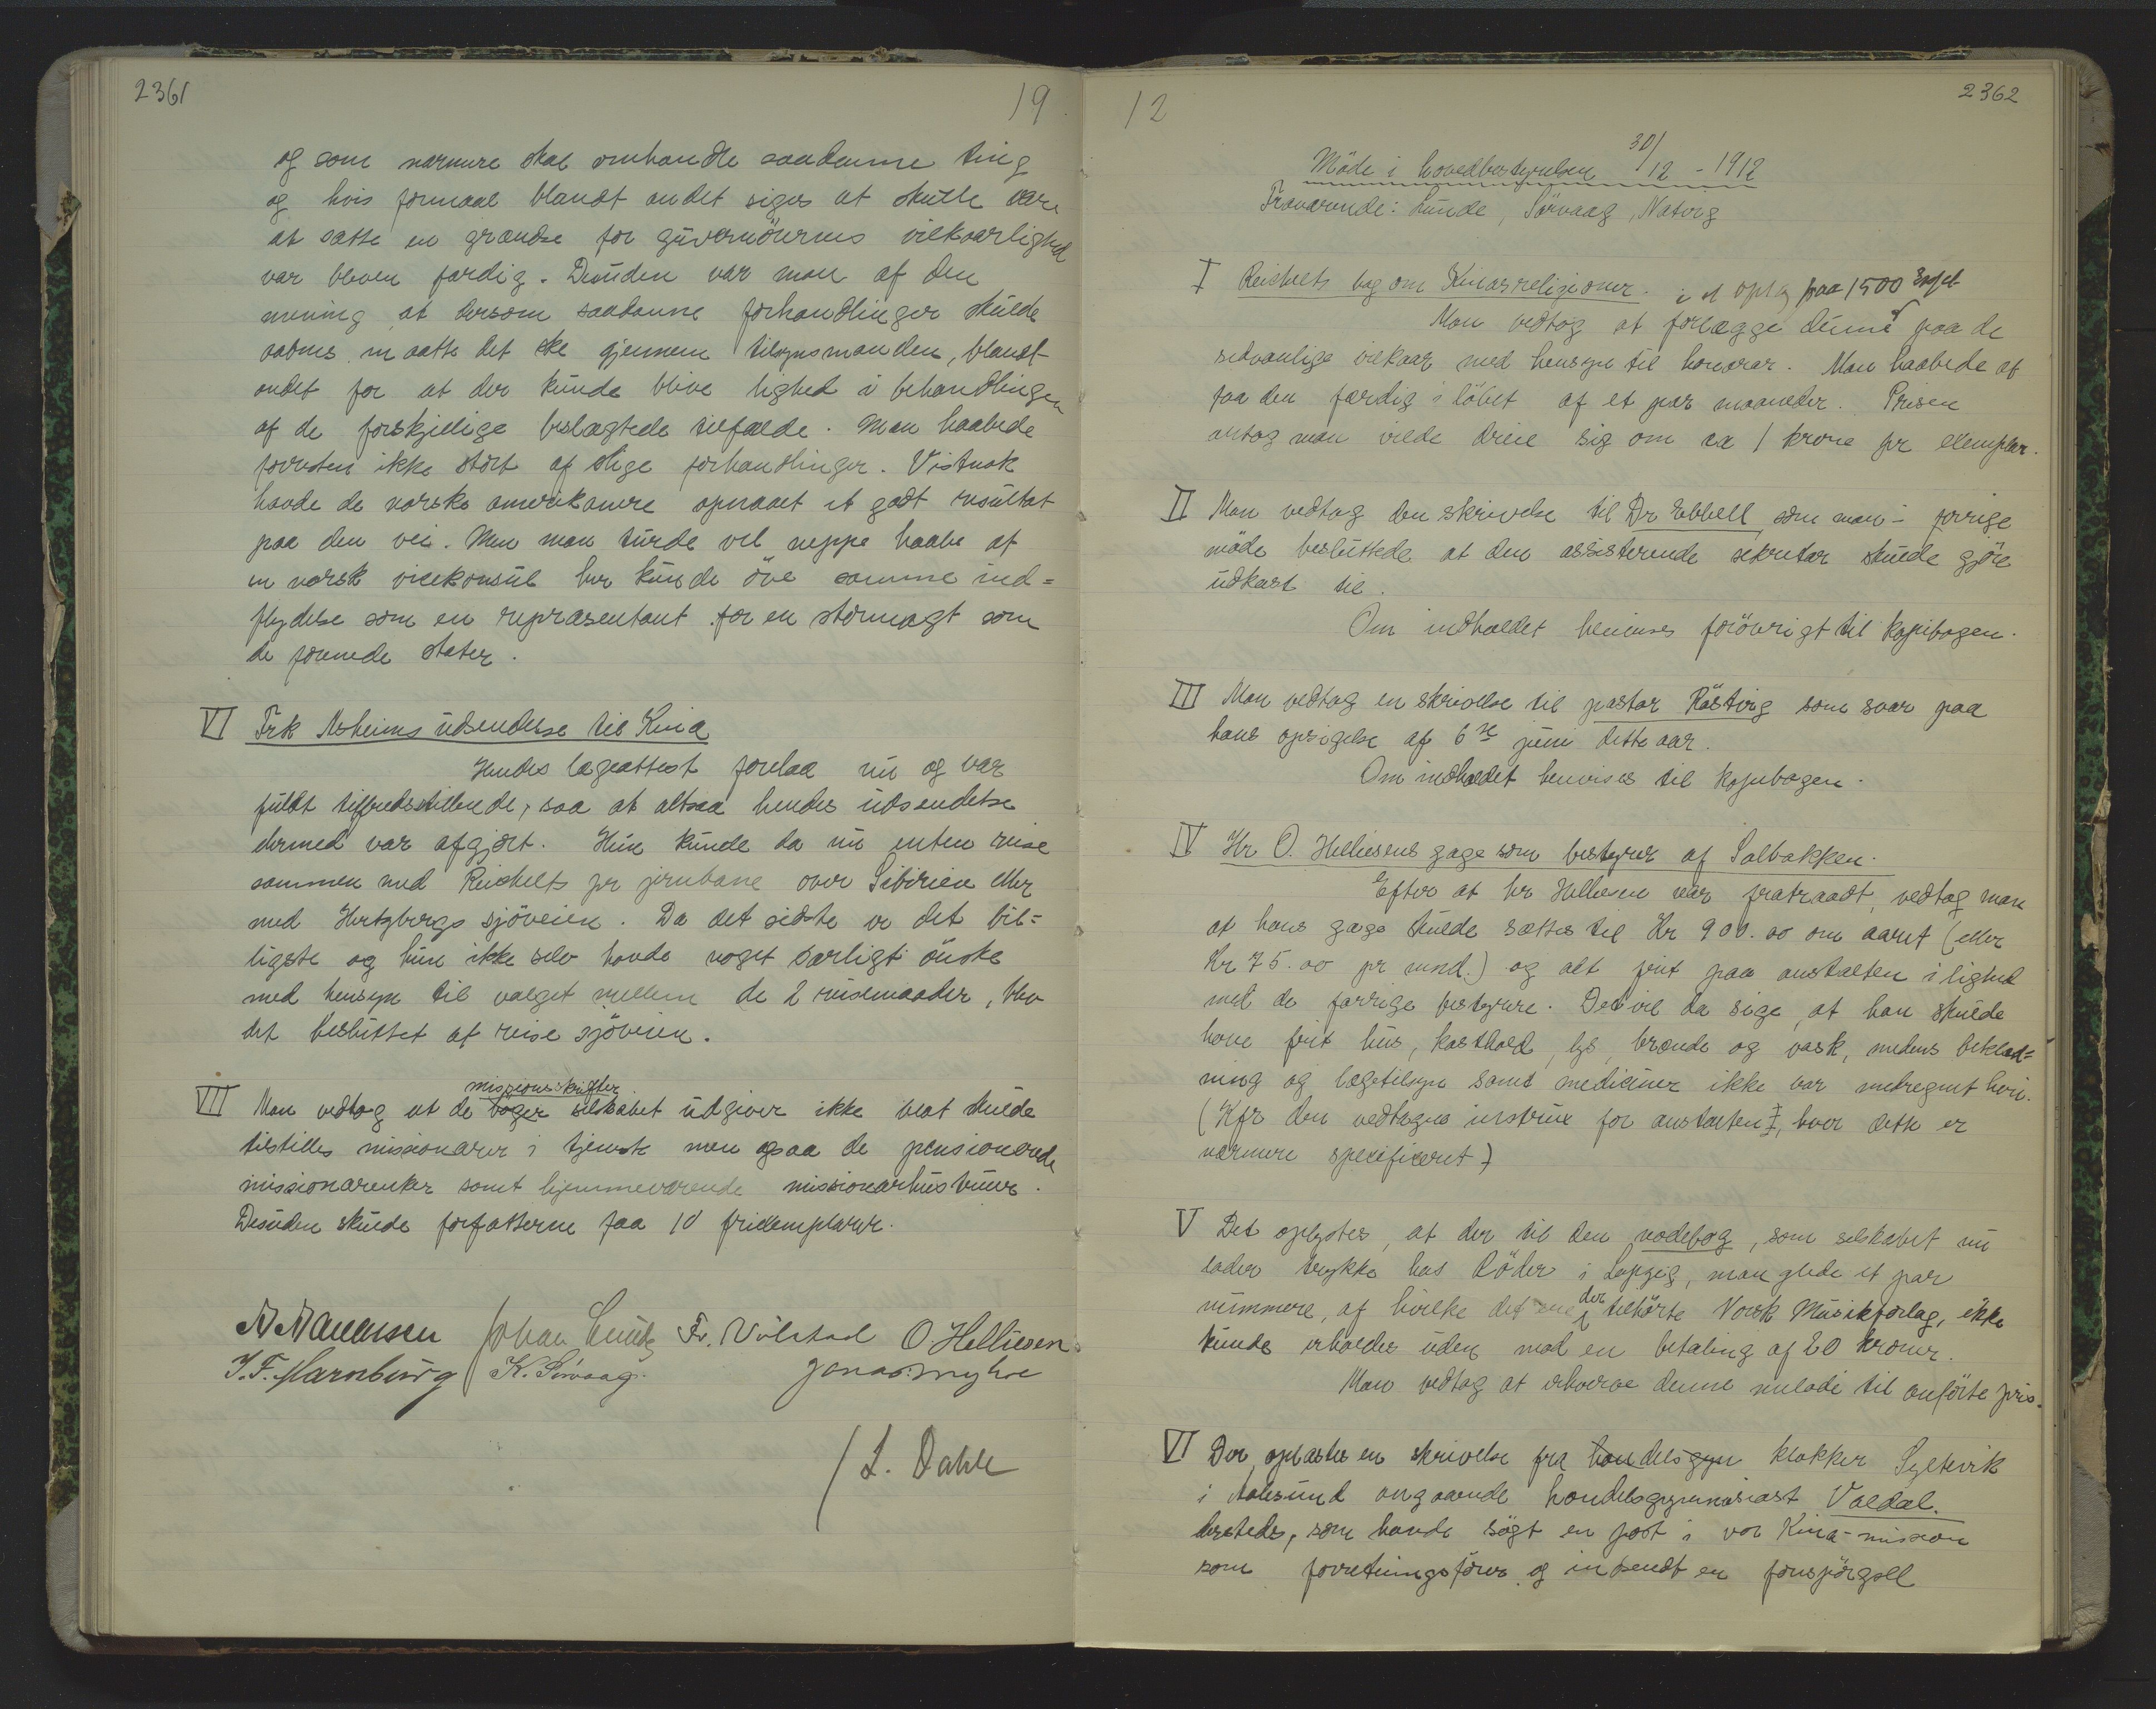 2361
19
og som nærmere skal omhandle saadanne ting
og hvis formaal blandt andet siges at skulle være
at sætte en grændse for guvernöurens vilkaarlighed
var bleven færdig. Desuden var man af den
mening at dersom saadanne forhandlinger skulde
aabnes maatte det ske gjennem tilsynsmanden, blandt
andet for at der kunde blive lighed i behandlingen
af de forskjellige beslægtede tilfælde. Man haabede
forresten ikke stort af slige forhandlinger. Vistnok
havde de norske amerikanere opnaaet et godt resultat
paa den vei. Men man turde vel neppe haabe at
en norsk vicekonsul her kunde öve samme ind=
flydelse som en repræsentant for en stormagt som
de forenede stater.
VI Frk Asheims udsendelse til Kina
Hendes lægeattest forelaa nu og var
fuldt tilfredsstillende, saa at altsaa hendes udsendelse
dermed var afgjort. Hun kunde da nu enten reise
sammen med Reichelts pr jernbane over Sibirien eller
med Hertzbergs sjöveien. Da det sidste er det bil=
ligste og hun ikke selv havde noget særligt önske
med hensyn til valget mellem de 2 reisemaader, blev
det besluttet at reise sjöveien.
missionsskrifter
VII Man vedtog at de böger selskabet udgiver ikke blot skulde
tilstilles missionærer i tjeneste men ogsaa de pensionerede
missionærenker samt hjemmeværende missionærhustruer.
Desuden skulde forfatterne faa 10 frieksemplarer.
Johan Lunde Fr. Völstad O Helliesen
J. F. Marnburg K. Sörvaag Jonas Myhre
/ L. Dahle
12
2362
Möde i hovedbestyrelsen 30/12 - 1912
Fraværende: Lunde, Sörvaag, Natvig
I Reichelts bog om Kinas religioner. i et oplag paa 1500 Expl
Man vedtog at forlægge denne paa de
sedvanlige vilkaar med hensyn til honorar. Man haabede at
faa den færdig i löbet af et par maaneder. Prisen
antog man vilde dreie sig om ca 1 krone pr exemplar.
II Man vedtog den skrivelse til Dr Ebbell som man i forrige
möde besluttede at den assisterende sekretær skulde gjöre
udkast til.
Om indholdet henvises foröverigt til kopibogen.
III Man vedtog en skrivelse til pastor Röstvig som svar paa
hans opsigelse af 6te juni dette aar.
Om indholdet henvises til kopibogen.
IV Hr O. Helliesens gage som bestyrer af Solbakken.
Efter at hr Helliesen var fratraadt, vedtog man
at hans gage skulde sættes til Kr 900.00 om aaret (eller
Kr 75.00 pr mnd.) og alt frit paa anstalten i lighed
med de forrige bestyrere. Det vil da sige, at han skulde
have frit hus, kosthold, lys, brænde og vask, medens beklæd=
ning og lægetilsyn samt mediciner ikke var medregnet heri.
(Kfr den vedtagne instrux for anstalten, hvor dette er
nærmere specificeret)
V Det oplystes, at der til den nodebog, som selskabet nu
lader trykke hos Röder i Leipzig, manglede et par
nummere, af hvilke det ene der tilhörte Norsk Musikforlag, ikke
kunde erholdes uden mod en betaling af 20 kroner.
Man vedtog at erhverve denne melodi til anförte pris.
VI Der oplæstes en skrivelse fra handelsgym klokker Syltevik
i Aalesund angaaende handelsgymnasiast Valdal.
dersteds, som havde sögt en post i vor Kina-mission
som forretningsförer og indsendt en forespörgsel